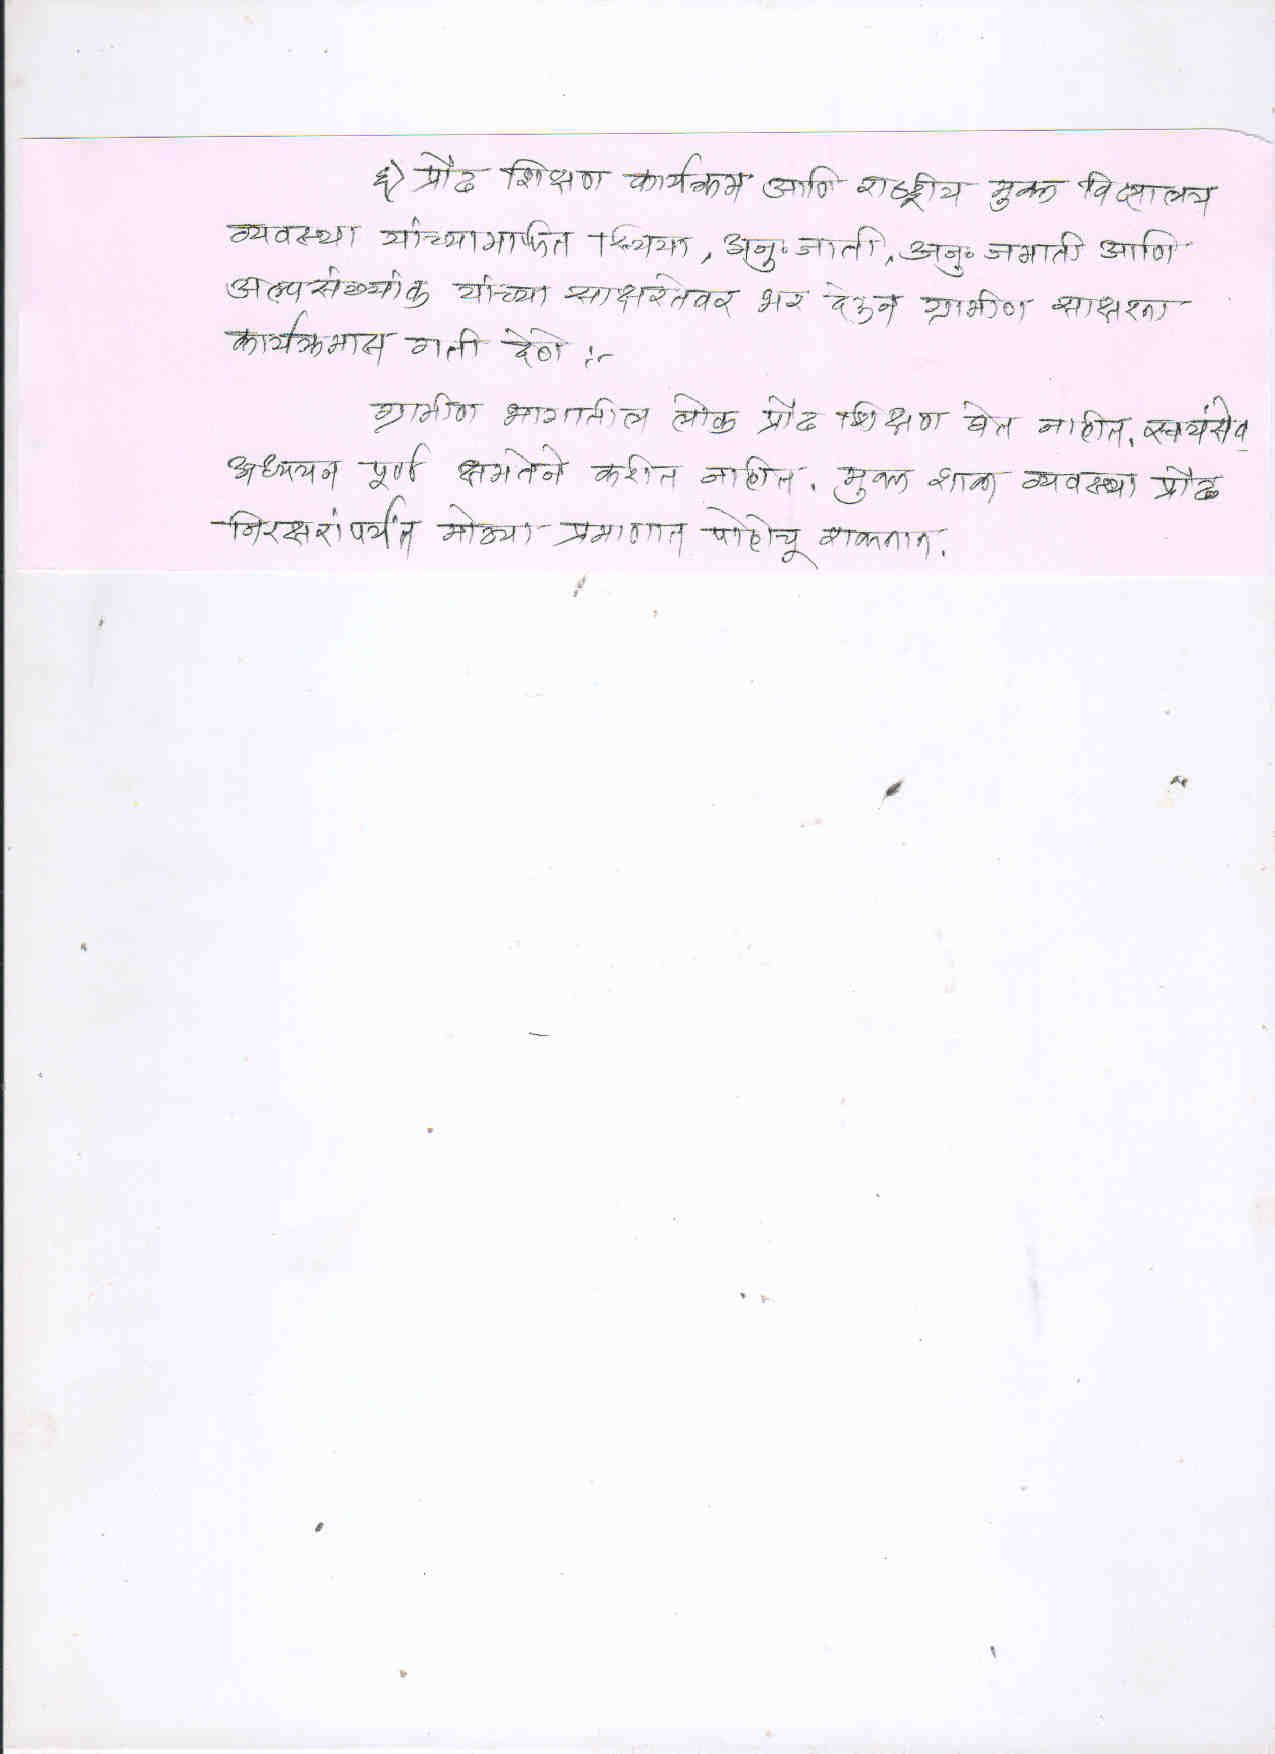 ६) प्रौढ शिक्षण कार्यक्रम आणि राष्ट्रीय मुक्त विद्यालय
व्यवस्था यांच्यामार्फत स्त्रिया, अनु. जाती, अनु. जमाती आणि
अल्पसंख्यांक यांच्या साक्षरतेवर भर देऊन ग्रामीण साक्षरता
कार्यक्रमास गती देणे :-
ग्रामीण भागातील लोक प्रौढ शिक्षण घेत नाहीत. स्वयंसेव
अध्ययन पूर्ण क्षमतेने करीत नाहीत. मुक्त शाळा व्यवस्था प्रौढ
निरक्षरांपर्यंत मोठ्या प्रमाणात पोहोचू शकतात.